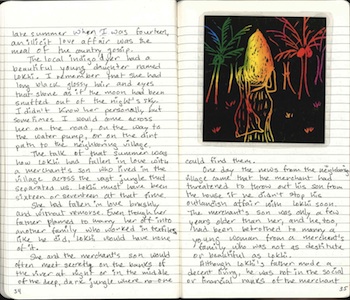 late summer when I was fourteen,
an illicit love affair was the
meal of the country gossip.
The local indigo dyer had a
beautiful young daughter named
Lokhi. I remember that she had
long black glossy hair and eyes
that shone as if the moon had been
snuffed out of the night's sky.
I didn't know her personally but
sometimes I would come across
her on the road, on the way to
the water pump, or on the dirt
path to the neighboring village.
The talk of that summer was
how Lokhi had fallen in love with
a merchant's son who lived in the
village across the vast jungle that
separated us. Lokhi must have been
sixteen or seventeen at that time.
She had fallen in love brashly
and without remorse. Even though her
father planned to marry her off into
another family who worked in textiles
like he did, Lokhi would have none
of it.
She and the merchant's son would
often meet secretly on the banks of
the river at night or in the middle
of the deep, dark jungle where no one
34
could find them.
One day the news from the neighboring
village came that the merchant had
threatened to throw out his son from
the house if he didn't stop his
outlandish affair with Lokhi soon.
The merchant's son was only a few
years older than her, and he too
had been betrothed to marry a
young woman from a merchant's
family who was not as destitute
or beautiful as Lokhi.
Although Lokhi's father made a
decent living, he was not in the social
or financial ranks of the merchant
35